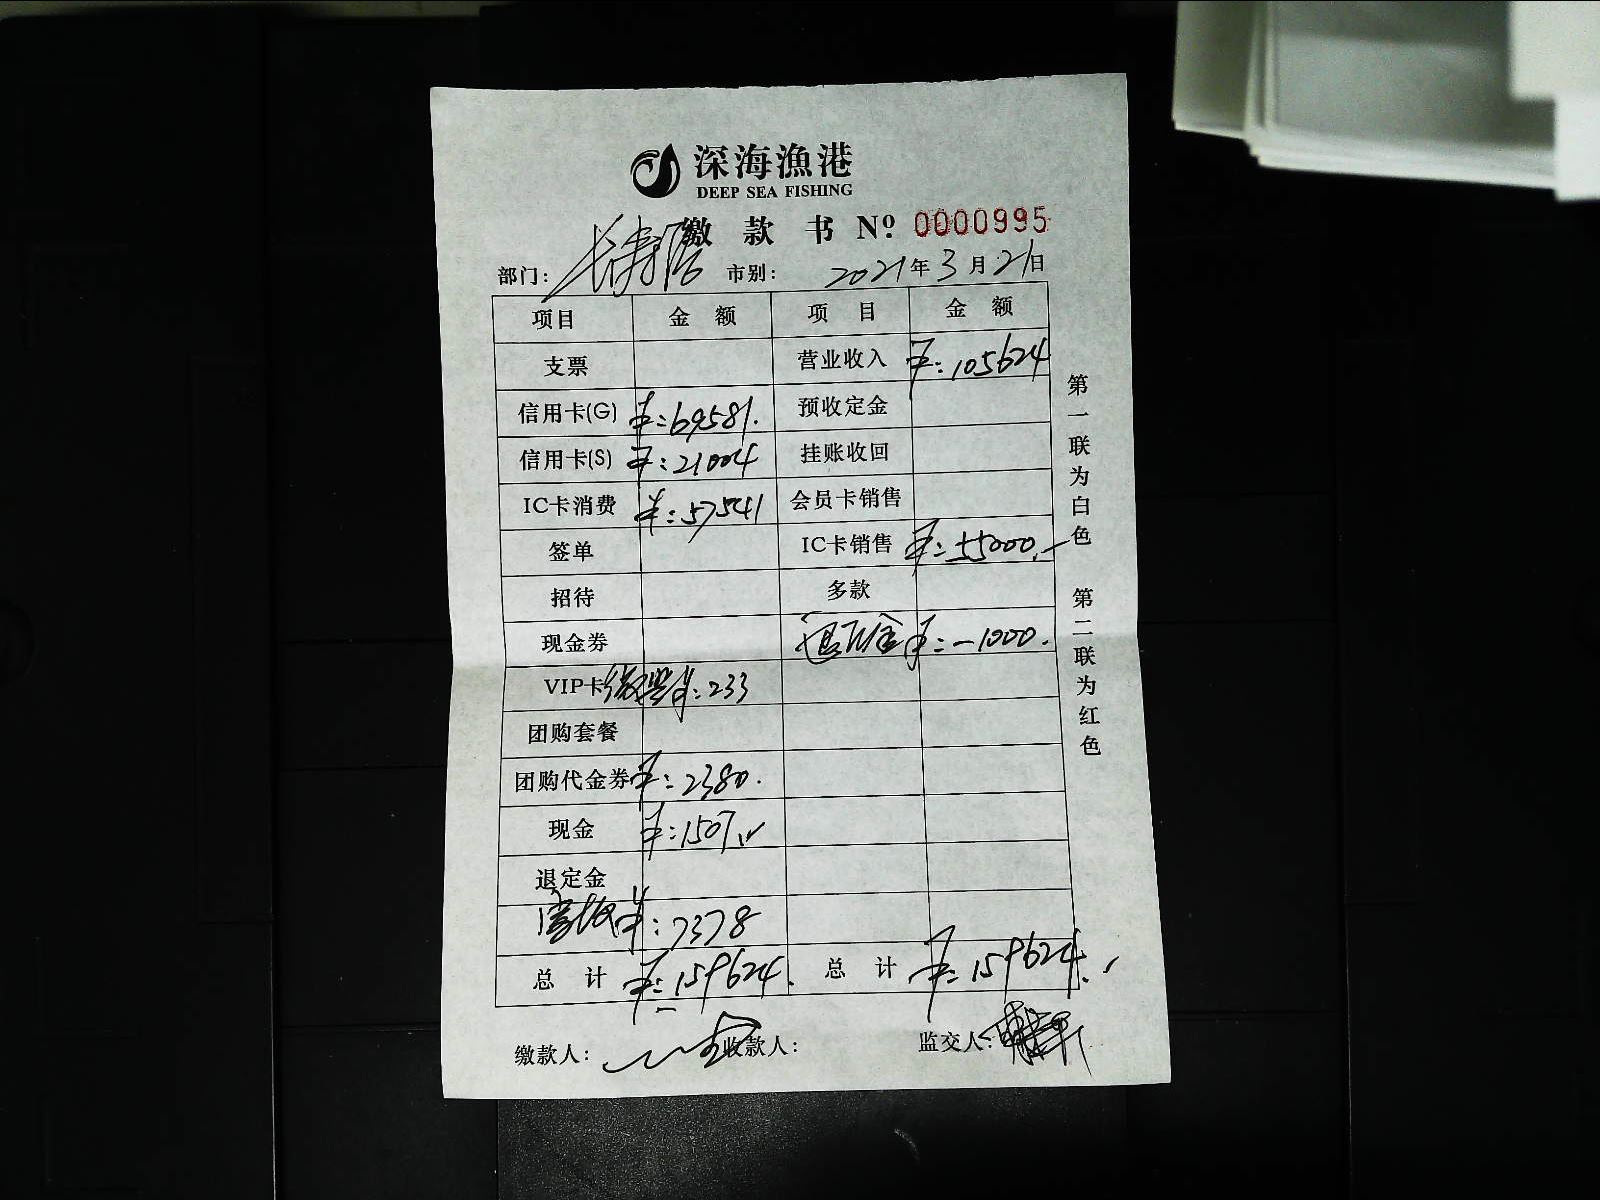 深海漁港
DEEP SEA FISHING
缴款书 Nº 0000995
部门: 市别: 2021年3月21日
项目 金额 项目 金额
支票 营业收入 ¥:105624
信用卡(G) ¥:69581. 预收定金
信用卡(S) ¥:21004 挂账收回
IC卡消费 ¥:57541 会员卡销售
签单 IC卡销售 ¥:55000.-
招待 多款
现金券 退订金 ¥:-1000.
VIP卡 ¥:233
团购套餐
团购代金券 ¥:2380.
现金 ¥:1507.
退定金
¥:7378
总计 ¥:159624. 总计 ¥:159624.
缴款人: 收款人: 监交人:
第一联为白色 第二联为红色